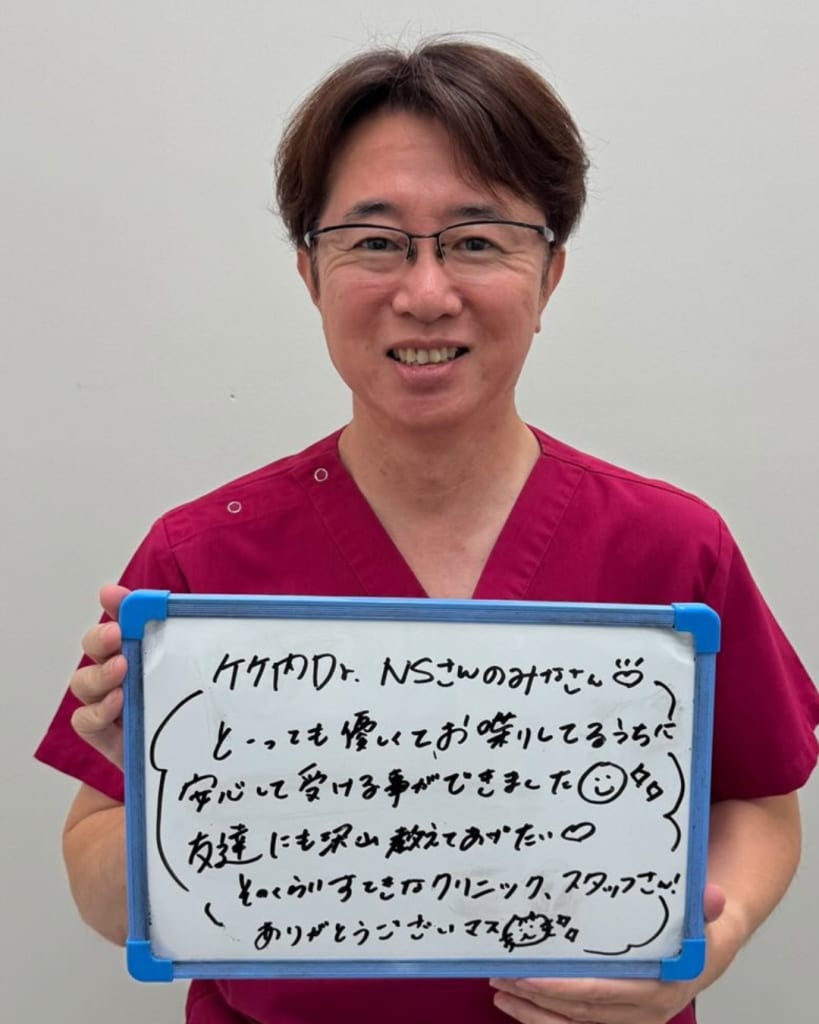 ケケ内Dr. NSさんのみなさん
とーっても優しくてお喋りしてるうちに
安心して受ける事ができました
友達にも沢山教えてあげたい
そのくらいすてきなクリニック、スタッフさん!
ありがとうございマス